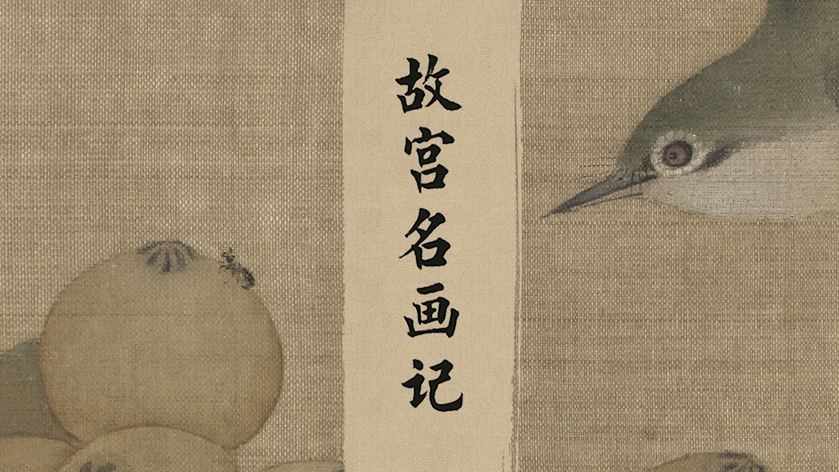 故宫名画记